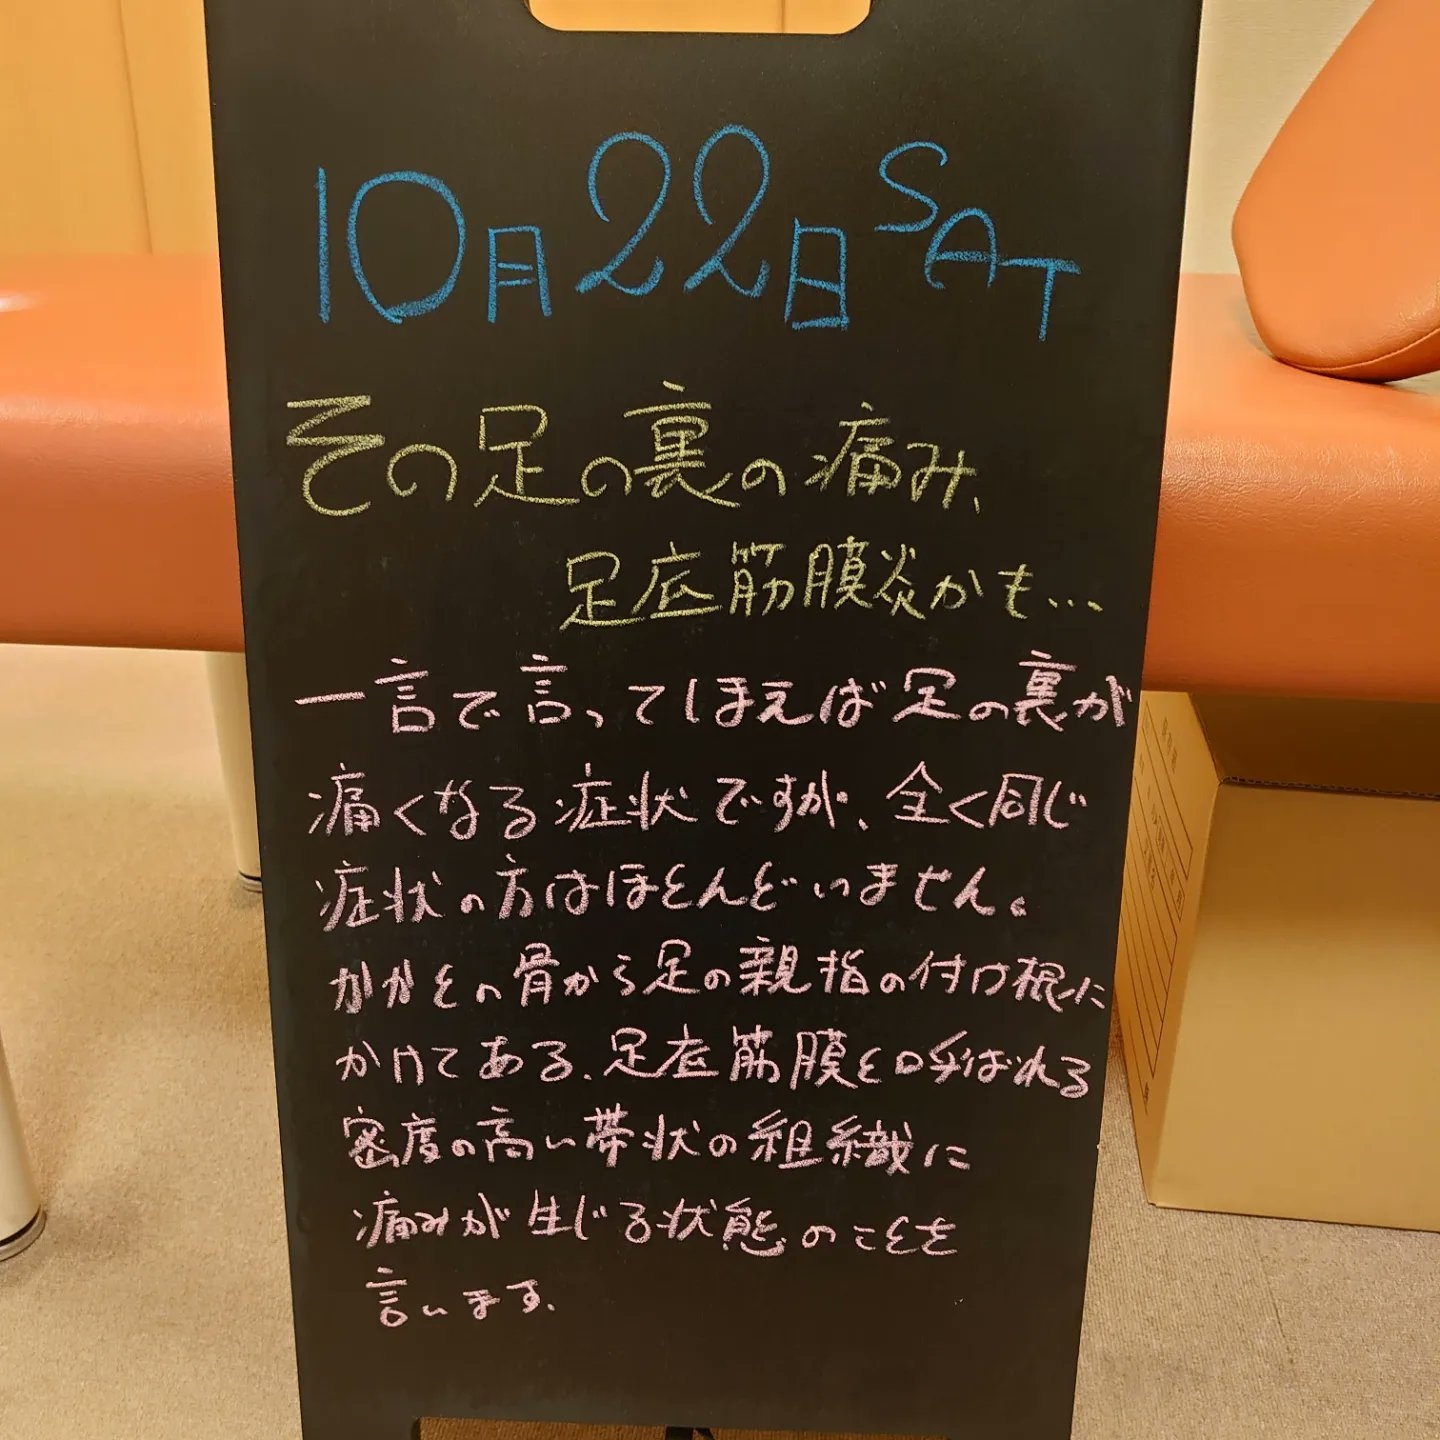 10月22日 SAT
その足の裏の痛み、
足底筋膜炎かも…
一言で言ってしまえば足の裏が
痛くなる症状ですが、全く同じ
症状の方はほとんどいません。
かかとの骨から足の親指の付け根に
かけてある、足底筋膜と呼ばれる
密度の高い帯状の組織に
痛みが生じる状態のことを
言います。